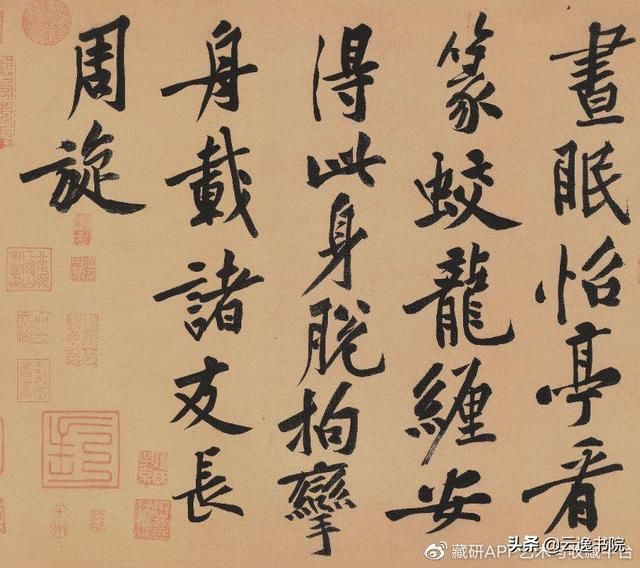 晝眠怡亭看
篆蛟龍纏安
得此身脫拘攣
舟載諸友長
周旋
头条 @云逸书院
藏研APP艺术与收藏平台